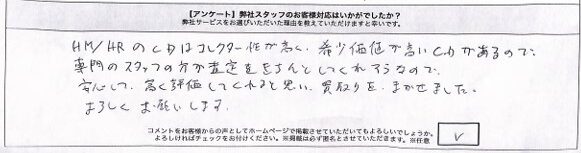 【アンケート】弊社スタッフのお客様対応はいかがでしたか？
弊社サービスをお選びいただいた理由を教えていただけますと幸いです。
HM/HRのCDはコレクター性が高く、希少価値が高いCDがあるので、
専門のスタッフの方が査定をきちんとしてくれそうなので、
安心して、高く評価してくれると思い、買取りを、まかせました。
よろしくお願いします。
コメントをお客様からの声としてホームページで掲載させていただいてもよろしいでしょうか。
よろしければチェックをお付けください。※掲載は必ず匿名とさせていただきます。※任意